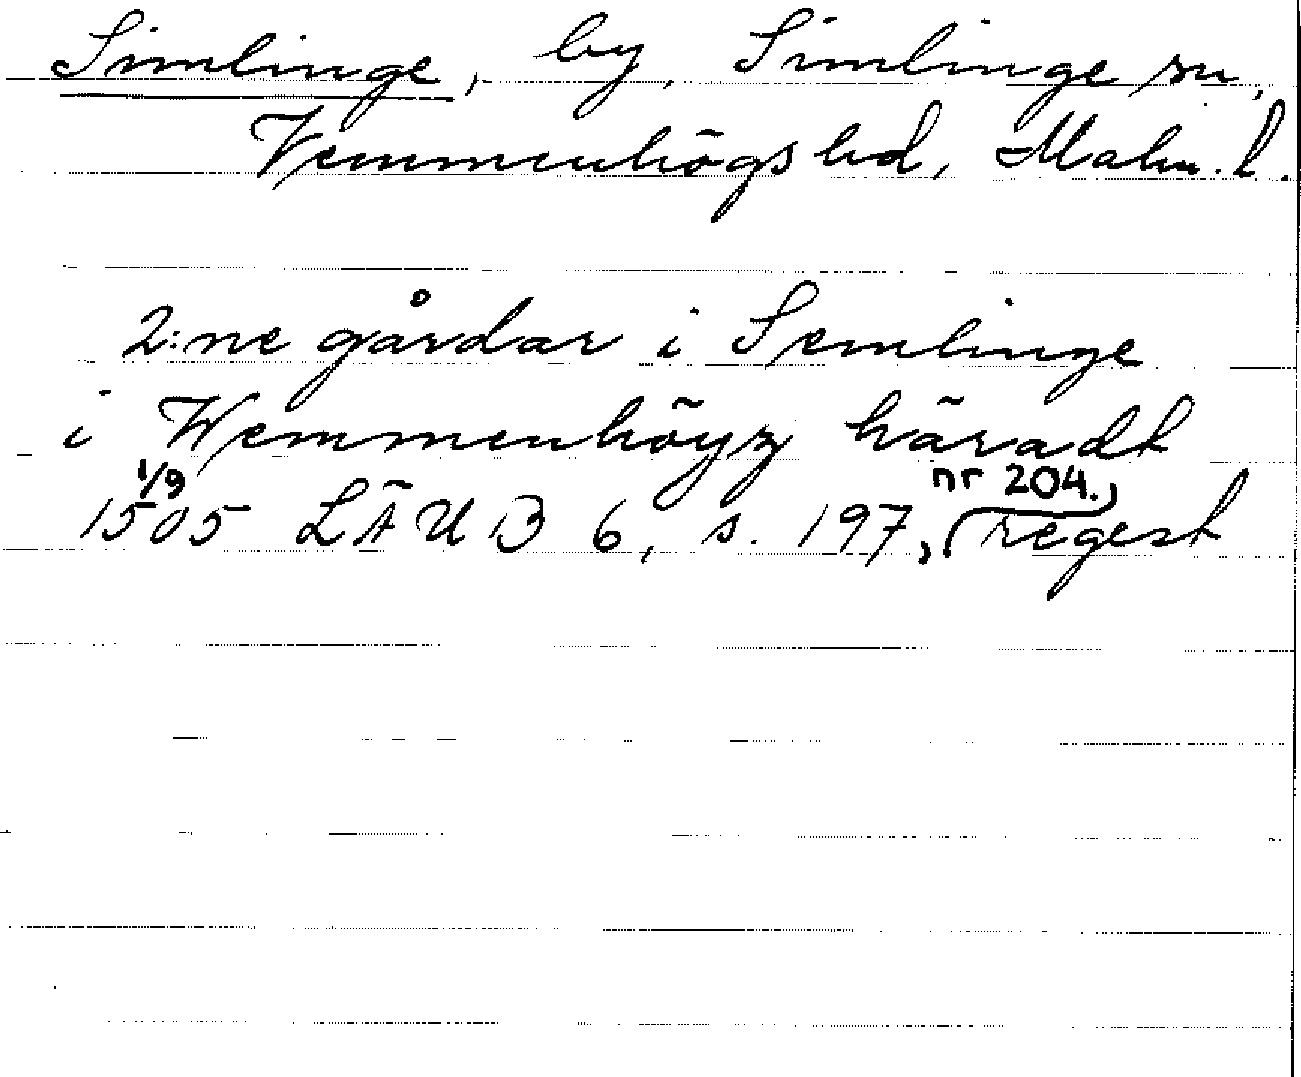 Simlinge, by, Simlinge sn,
Vemmenhögs hd, Malm. l.
2:ne gårdar i Semlinge
i Wemmenhöyz häradt
1/9 nr 204.,
1505 LÄUB 6, s. 197, regest